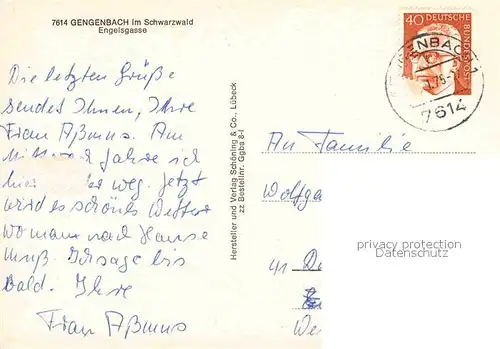 7614 GENGENBACH im Schwarzwald
Engelsgasse
Die letzten Grüße
sendet Ihnen, Ihre
Frau Aßmus. Am
Mittwoch fahre ich
hier weg. Jetzt
wird es schönes Wetter
wo man nach Hause
muß. Ich sage bis
bald. Ihre
Frau Aßmus
Hersteller und Verlag Schöning & Co., Lübeck
zz Bestellnr. Ggba 8-f
40
DEUTSCHE BUNDESPOST
GENGENBACH 1
7614
An Familie
Wolfga
41 D
We
privacy protection
Datenschutz